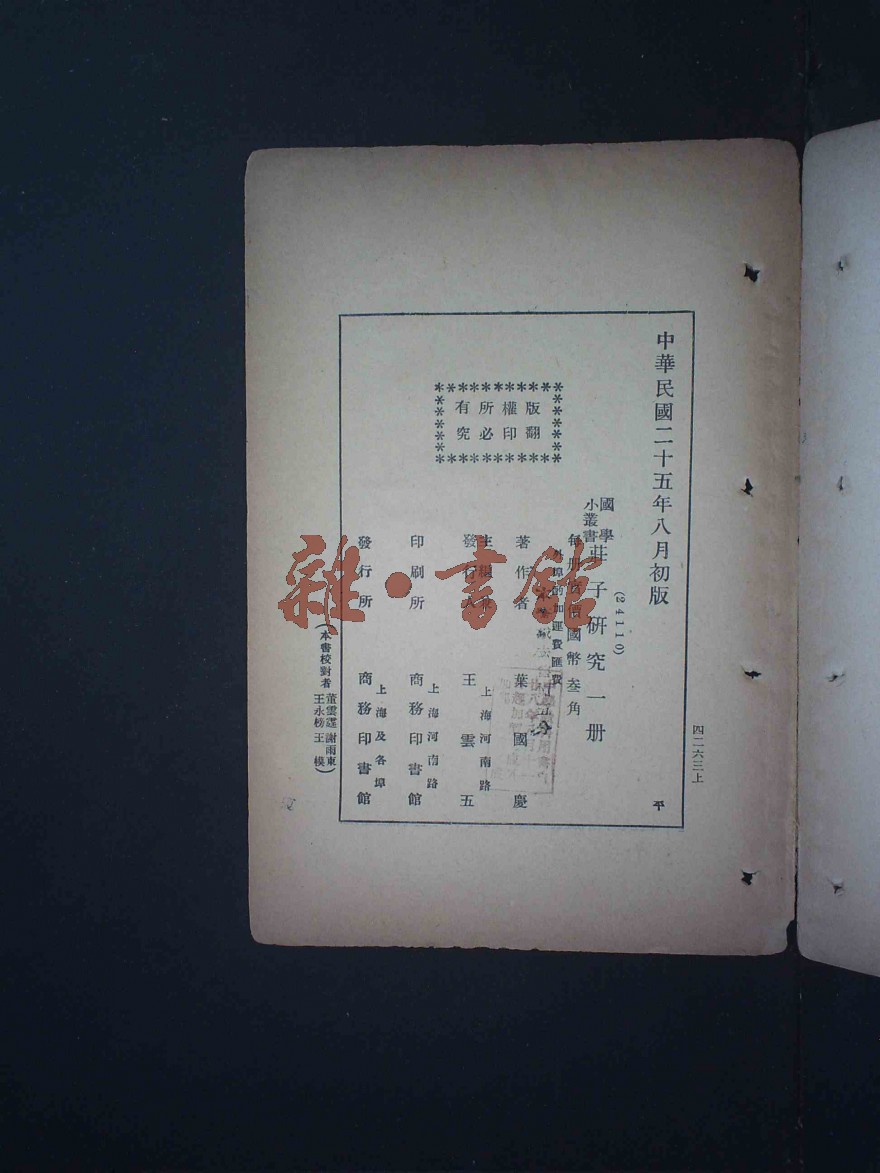 中華民國二十五年八月初版
四二六三上
平
(24110)
國學
小叢書
莊子研究一册
每册實價國幣叁角
外埠酌加運費匯費
著作者 葉國慶
主編兼
發行人 王雲五
上海河南路
印刷所 商務印書館
上海河南路
發行所 商務印書館
上海及各埠
版權所有
翻印必究
(本書校對者 董雲遠 謝雨東
王永榜 王模)
雜·書館